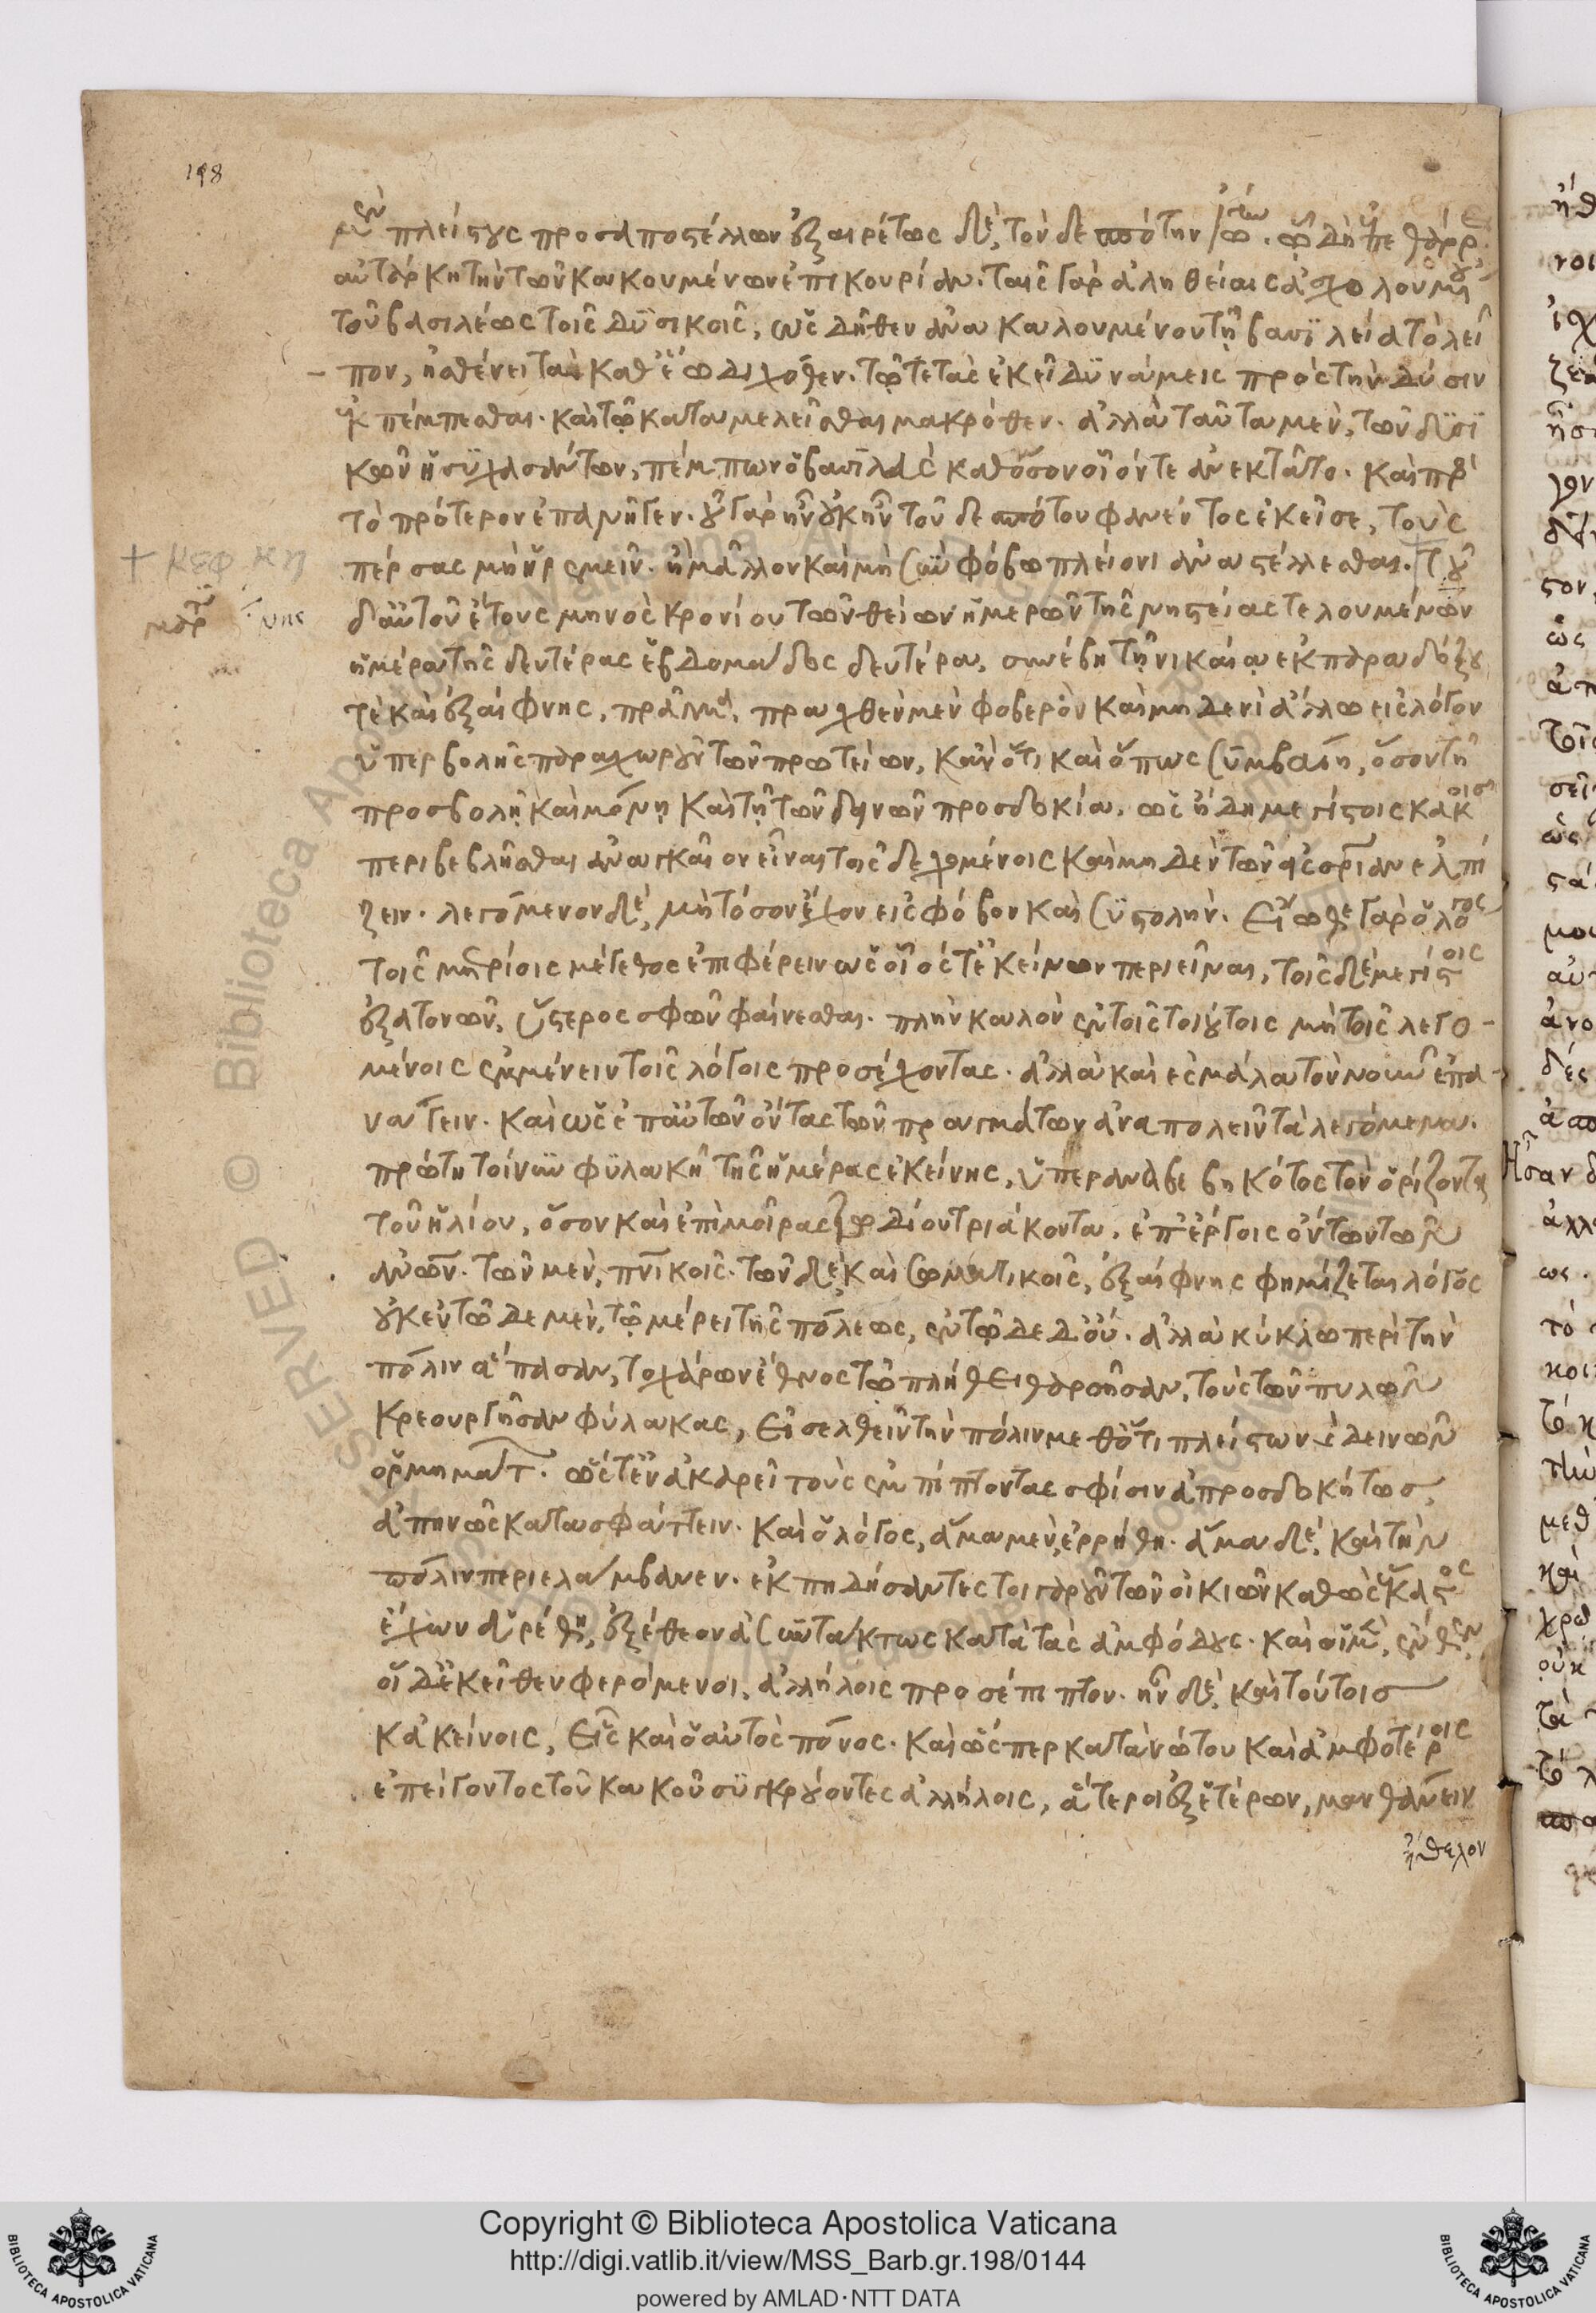 198
πλείστους προσαποστέλλων ἐξαιρέτως δὲ, τὸν δεσπότην
αὐτάρκη τὴν τῶν κακουμένων ἐπικουρίαν. ταῖς γὰρ ἀληθείαις ἀσχολουμένου
τοῦ βασιλέως τοῖς δυσικοῖς, ὡς δῆθεν ἀνακαλουμένου τῇ βασιλείᾳ τὸ λεῖ
πον, ἠσθένει τὰ καθ' ἕω διχόθεν. τῷ τε τὰς ἐκεῖ δυνάμεις πρὸς τὴν δύσιν
ἐκπέμπεσθαι. καὶ τῷ καταμελεῖσθαι μακρόθεν. ἀλλὰ ταῦτα μὲν, τῶν δυσι
κῶν ἡσυχασάντων, πέμπων ὁ βασιλεὺς καθόσον οἷόντε ἀνεκτᾶτο. καὶ πρὸς
τὸ πρότερον ἐπανῆγεν. οὐ γὰρ ἦν οὐκ ἦν τοῦ δεσπότου φανέντος ἐκεῖσε, τοὺς
πέρσας μὴ ἠρεμεῖν. ἢ μᾶλλον καὶ μὴ σὺν φόβω πλείονι ἀναστέλλεσθαι. τοῦ
+ κεφ κη
δ' αὐτοῦ ἔτους μηνὸς κρονίου τῶν θείων ἡμερῶν τῆς νηστείας τελουμένων
ἡμέρα τῆς δευτέρας ἑβδομάδος δευτέρα, συνέβη τῇ νικαίᾳ ἐκ παραδόξου
τὲ καὶ ἐξαίφνης, πρᾶγμα, πραχθὲν μὲν φοβερὸν καὶ μηδενὶ ἄλλω εἰς λόγον
ὑπερβολῆς παραχωροῦν τῶν πρωτείων, κἂν ὅτι καὶ ὅπως συμβαίη, ὅσον τῇ
προσβολῇ καὶ μόνῃ καὶ τῇ τῶν δεινῶν προσδοκίᾳ. ὡς ἤδη μεγίστοις κακοῖς
περιβεβλῆσθαι ἀναγκαῖον εἶναι τοῖς δεχομένοις καὶ μηδὲν τῶν εἰς σωτηρίαν ἐλπί
ζειν. λεγόμενον δὲ, μὴ τόσον ἔχον εἰς φόβον καὶ συστολήν. εἴωθε γὰρ ὁ λόγος
τοῖς μετρίοις μέγεθος ἐπιφέρειν ὡς οἷός τ' ἐκείνων περιεῖναι, τοῖς δὲ μεγίστοις
ἐξατονῶν, ὕστερος σφῶν φαίνεσθαι. πλὴν καλὸν ἐν τοῖς τοιούτοις μὴ τοῖς λεγο-
μένοις ἐμμένειν τοῖς λόγοις προσέχοντας. ἀλλὰ καὶ ἐς μάλα τὸν νοῦν ἐπα-
νάγειν. καὶ ὡς ἐπ' αὐτῶν ὄντας τῶν πραγμάτων ἀναπολεῖν τὰ λεγόμενα.
πρώτη τοίνυν φυλακῇ τῆς ἡμέρας ἐκείνης, ὑπεραναβεβηκότος τὸν ὁρίζοντα
τοῦ ἡλίου, ὅσον καὶ ἐπὶ μοίρας ζωδίου τριάκοντα, ἐπ' ἔργοις ὄντων τῶν
ἀνῶν. τῶν μὲν, πνικοῖς. τῶν δὲ, καὶ σωματικοῖς, ἐξαίφνης φημίζεται λόγος
οὐκ ἐν τῶδε μὲν, τῷ μέρει τῆς πόλεως, ἐν τῶδε δ' οὔ. ἀλλὰ κύκλω περὶ τὴν
πόλιν ἅπασαν, τοχάρων ἔθνος τῷ πλήθει θαρρῆσαν, τοὺς τῶν πυλῶν
κρεουργῆσαν φύλακας, εἰσελθεῖν τὴν πόλιν μεθ' ὅτι πλείστων δεινῶν
ὁρμημάτ. ὥστ' ἐν ἀκαρεῖ τοὺς ἐμπίπτοντας σφίσιν ἀπροσδοκήτως,
ἀπηνῶς κατασφάττειν. καὶ ὁ λόγος, ἅμα μὲν, ἐρρήθη. ἅμα δὲ, καὶ τὴν
πόλιν περιελάμβανεν. ἐκπηδήσαντες τοιγαροῦν τῶν οἰκιῶν καθὼς ἕκαστος
ἔχων εὑρέθη, ἐξέθεον ἀσυντάκτως κατὰ τὰς ἀμφόδους. καὶ οἱ μὲν, ἔνθεν,
οἱ δ' ἐκεῖθεν φερόμενοι, ἀλλήλοις προσέπιπτον. ἦν δὲ, καὶ τούτοις
κἀκείνοις, εἷς καὶ ὁ αὐτὸς πόνος. καὶ ὥσπερ κατὰ νώτου καὶ ἀμφοτέροις
ἐπείγοντος τοῦ κακοῦ συγκρούοντες ἀλλήλοις, ἅτεροι ἐξ ἑτέρων, μανθάνειν
ἤθελον
Copyright © Biblioteca Apostolica Vaticana
http://digi.vatlib.it/view/MSS_Barb.gr.198/0144
powered by AMLAD·NTT DATA